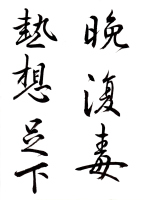 晚復毒
熱想足下